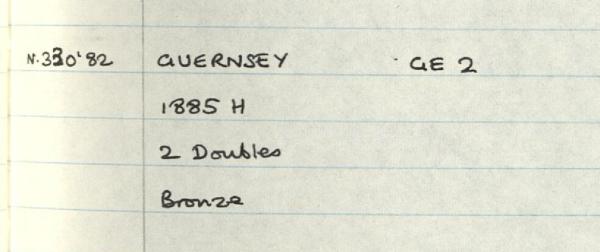 N.330'82 GUERNSEY GE 2
1885 H
2 Doubles
Bronze